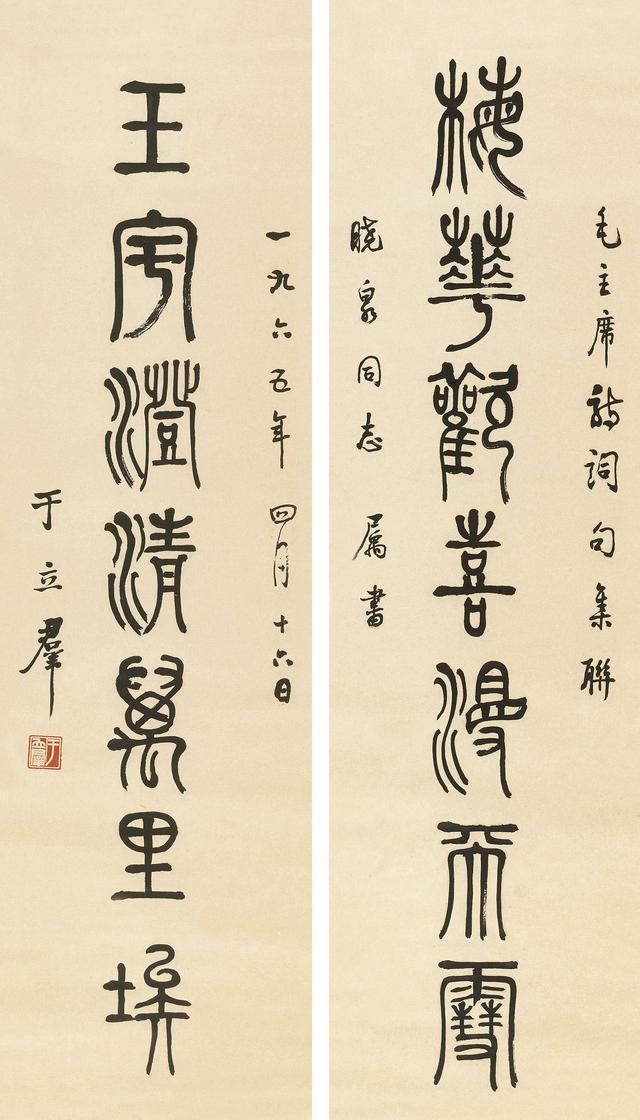 毛主席詩詞句集聯
梅華歡喜漫天雪
晓泉同志 属書
一九六五年 四月十六日
玉宇澄清萬里埃
于立羣
于立羣